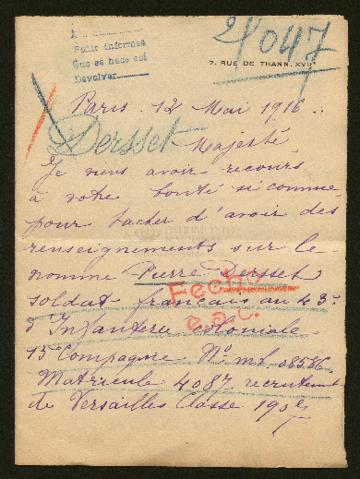 Pedir informes
Que se hace así
Devolver
21047
7, RUE DE THANN. XVII
Paris. 12 Mai 1916.
Dersset
Majesté,
Je viens avoir recours
à votre bonté si connue
pour tacher d'avoir des
renseignements sur le
nommé Pierre Dersset
soldat français au 43e
d'Infanterie coloniale
Fecha
e.s.c.
15e Compagnie. No ml. 08586
Matricule 4087 recrutement
de Versailles Classe